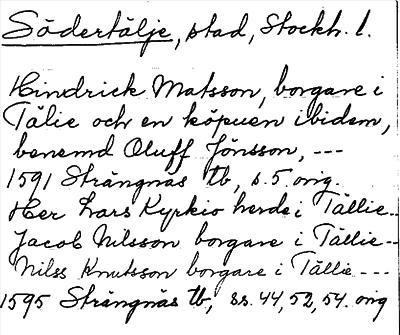 Södertälje, stad, Stockh. l.
Hindrick Matsson, borgare i
Tälie och en köpuen ibidem,
benemd Oluff Jönsson, ---
1591 Strängnäs tb, s. 5 orig.
Her Lars Kyrkio herde i Tällie --
Jacob Nilsson borgare i Tällie --
Nilss Knutsson borgare i Tällie ---
1595 Strängnäs tb, ss. 44, 52, 54. orig